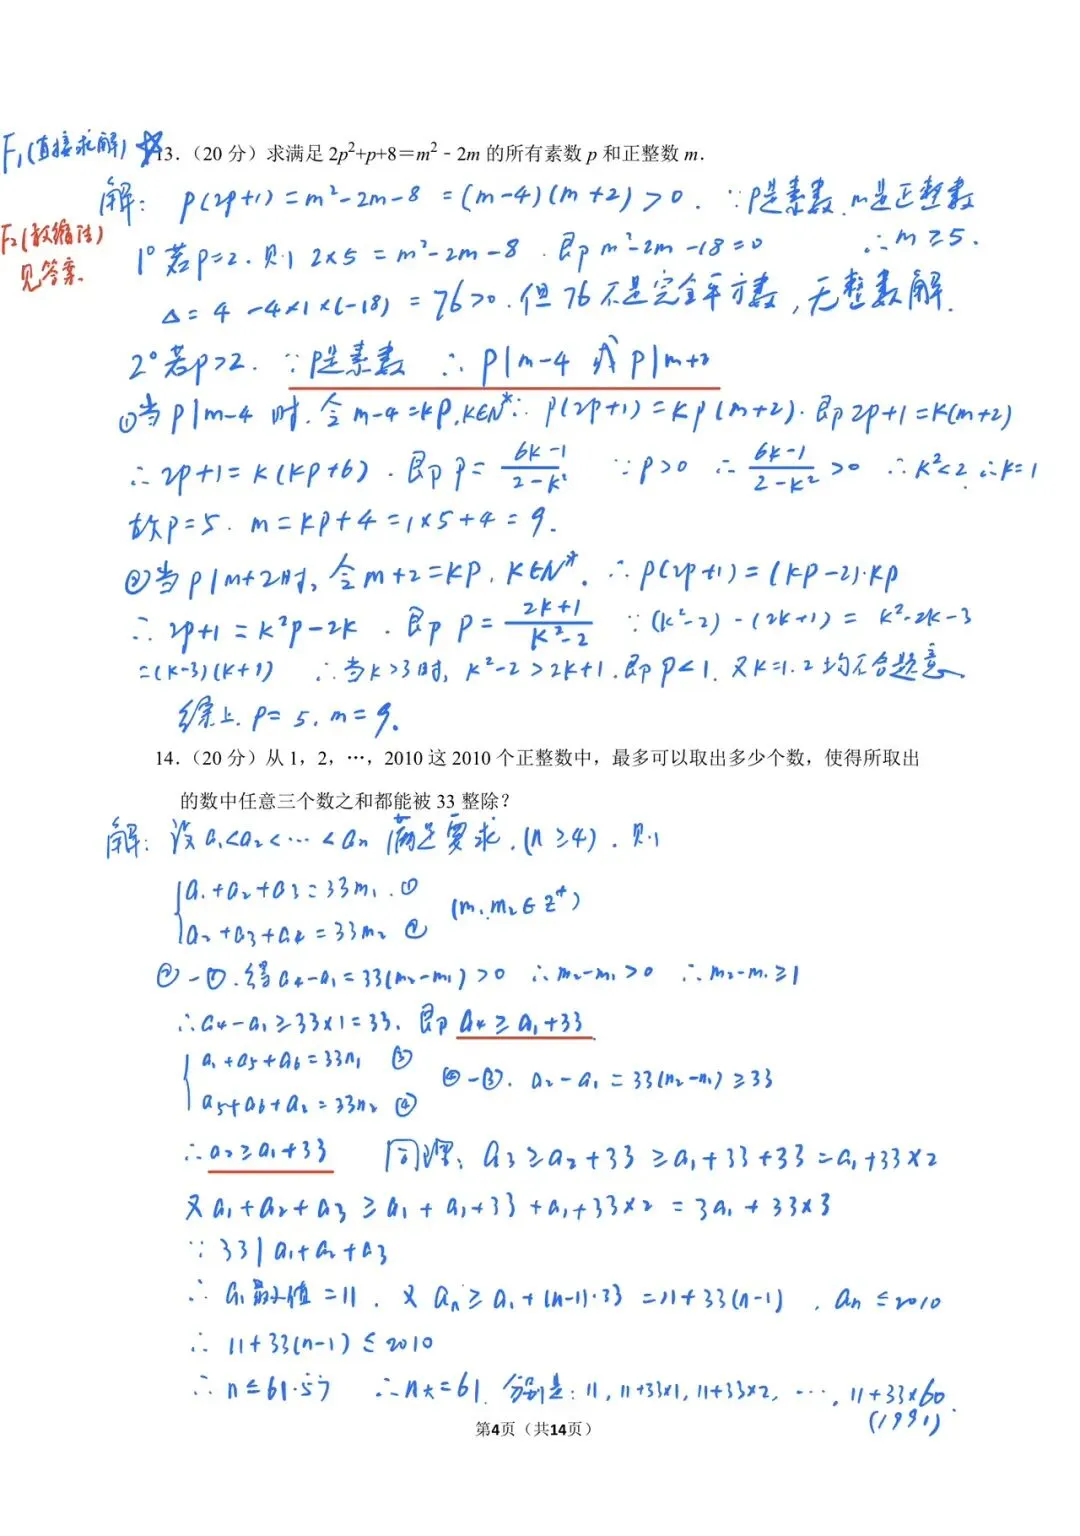 F₁(直接求解) ☆13.（20 分）求满足 2p²+p+8＝m²﹣2m 的所有素数 p 和正整数 m.
解: p(2p+1) = m²-2m-8 = (m-4)(m+2) > 0. ∵ p是素数, m是正整数
F₂(放缩法) 见答案.
∴ m ≥ 5.
1° 若p=2. 则 2×5 = m²-2m-8. 即 m²-2m-18=0
Δ= 4 -4×1×(-18) = 76>0. 但 76 不是完全平方数, 无整数解.
2° 若p>2. ∵ p是素数 ∴ p|m-4 或 p|m+2
①当 p|m-4 时. 令 m-4=kp, k∈N* ∴ p(2p+1)=kp(m+2). 即 2p+1=k(m+2)
∴ 2p+1 = k(kp+6). 即 p = (6k-1)/(2-k²) ∵ p>0 ∴ (6k-1)/(2-k²) >0 ∴ k²<2. ∴ k=1
故 p=5. m=kp+4=1×5+4=9.
②当 p|m+2时, 令 m+2=kp, k∈N*. ∴ p(2p+1)=(kp-2)·kp ∴ 6
∴ 2p+1 = k²p-2k. 即 p = (2k+1)/(k²-2) ∵ (k²-2)-(2k+1) = k²-2k-3
=(k-3)(k+1) ∴ 当 k>3时, k²-2>2k+1. 即 p<1. 又 k=1.2 均不合题意
综上. p=5, m=9.
14.（20 分）从 1，2，…，2010 这 2010 个正整数中，最多可以取出多少个数，使得所取出
的数中任意三个数之和都能被 33 整除？
解: 设 a₁<a₂<…<aₙ 满足要求. (n≥4). 则
{a₁+a₂+a₃=33m₁. ①
a₂+a₃+a₄=33m₂ ② (m₁,m₂∈Z⁺)
②-①. 得 a₄-a₁=33(m₂-m₁)>0 ∴ m₂-m₁>0 ∴ m₂-m₁≥1
∴ a₄-a₁≥33×1=33. 即 a₄≥a₁+33
{a₁+a₅+a₆=33n₁ ③
a₅+a₆+a₂=33n₂ ④ ④-③. a₂-a₁=33(n₂-n₁)≥33
∴ a₂≥a₁+33 同理: a₃≥a₂+33≥a₁+33+33=a₁+33×2
又 a₁+a₂+a₃≥a₁+a₁+33+a₁+33×2=3a₁+33×3
∵ 33|a₁+a₂+a₃
∴ a₁最小值=11. 又 aₙ≥a₁+(n-1)·33=11+33(n-1), aₙ≤2010
∴ 11+33(n-1)≤2010
∴ n≤61.57 ∴ n大=61. 分别是: 11, 11+33×1, 11+33×2, …, 11+33×60.
(1991)
第4页（共14页）